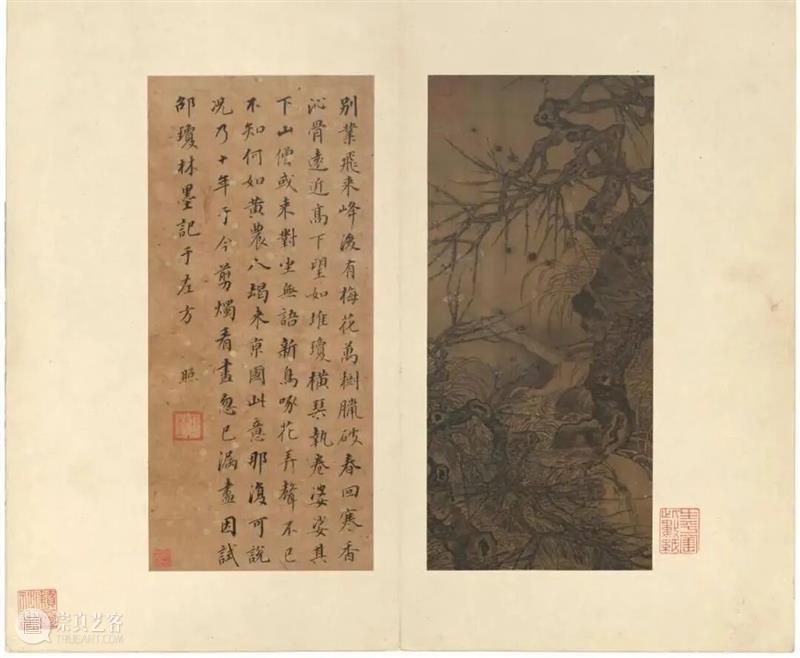 別業飛来峰後有梅花萬樹臘破春回寒香
沁骨遠近高下望如堆瓊橫琴執卷婆娑其
下山僧或来對坐無語新鳥啄花弄聲不已
不知何如黃農人朅来京國此意那復可說
况乃十年于今剪燭看畫忽已漏盡因試
邵瓊林墨記于左方 照
崇真艺客
TRUEART.COM